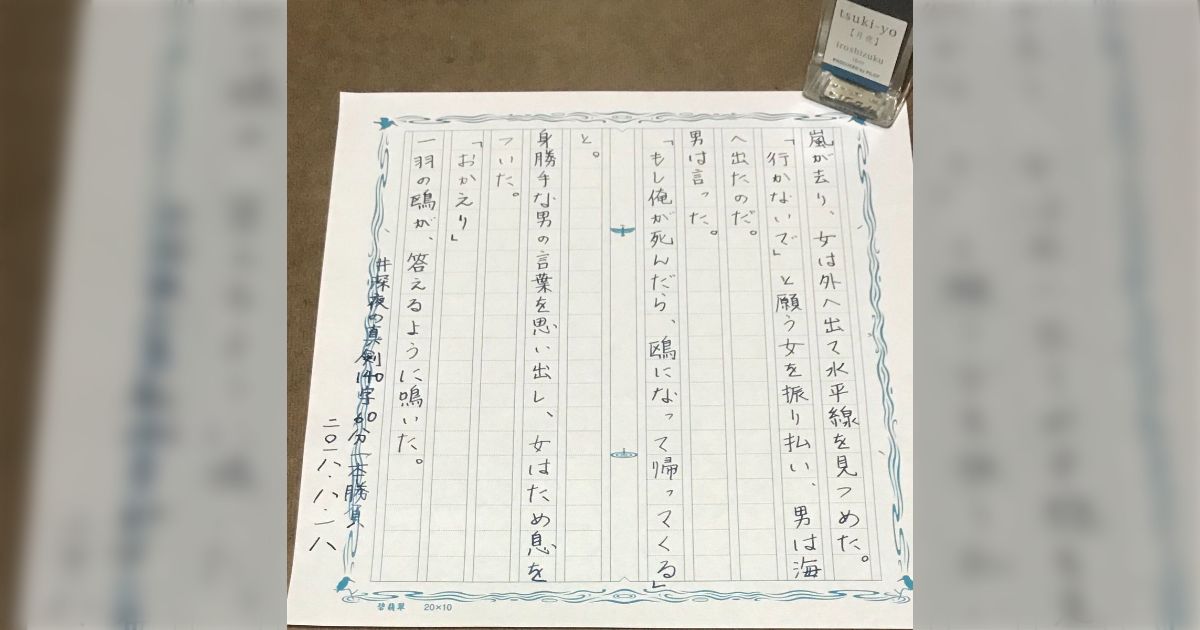 嵐が去り、女は外へ出て水平線を見つめた。
「行かないで」と願う女を振り払い、男は海
へ出たのだ。
男は言った。
「もし俺が死んだら、鴎になって帰ってくる」
と。
身勝手な男の言葉を思い出し、女はため息を
ついた。
「おかえり」
一羽の鴎が、答えるように鳴いた。
#深夜の真剣140字60分一本勝負
二〇一八.八.二八
碧翡翠 20×10
tsuki-yo
【月夜】
iroshizuku
PRODUCED by PILOT